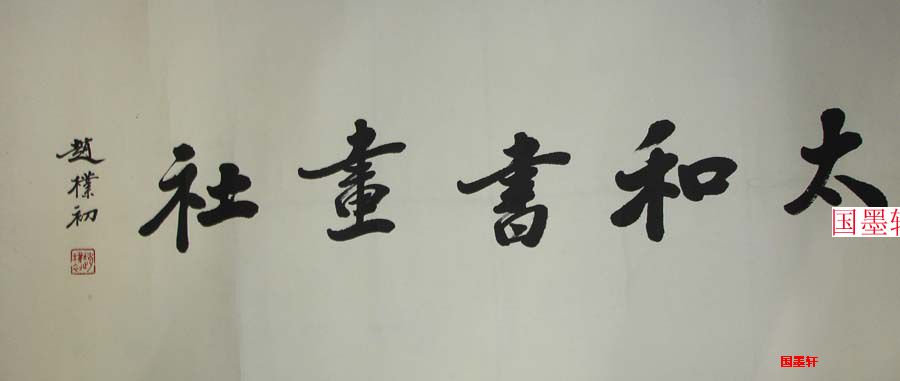 太和書畫社
趙樸初
国墨轩
国墨轩